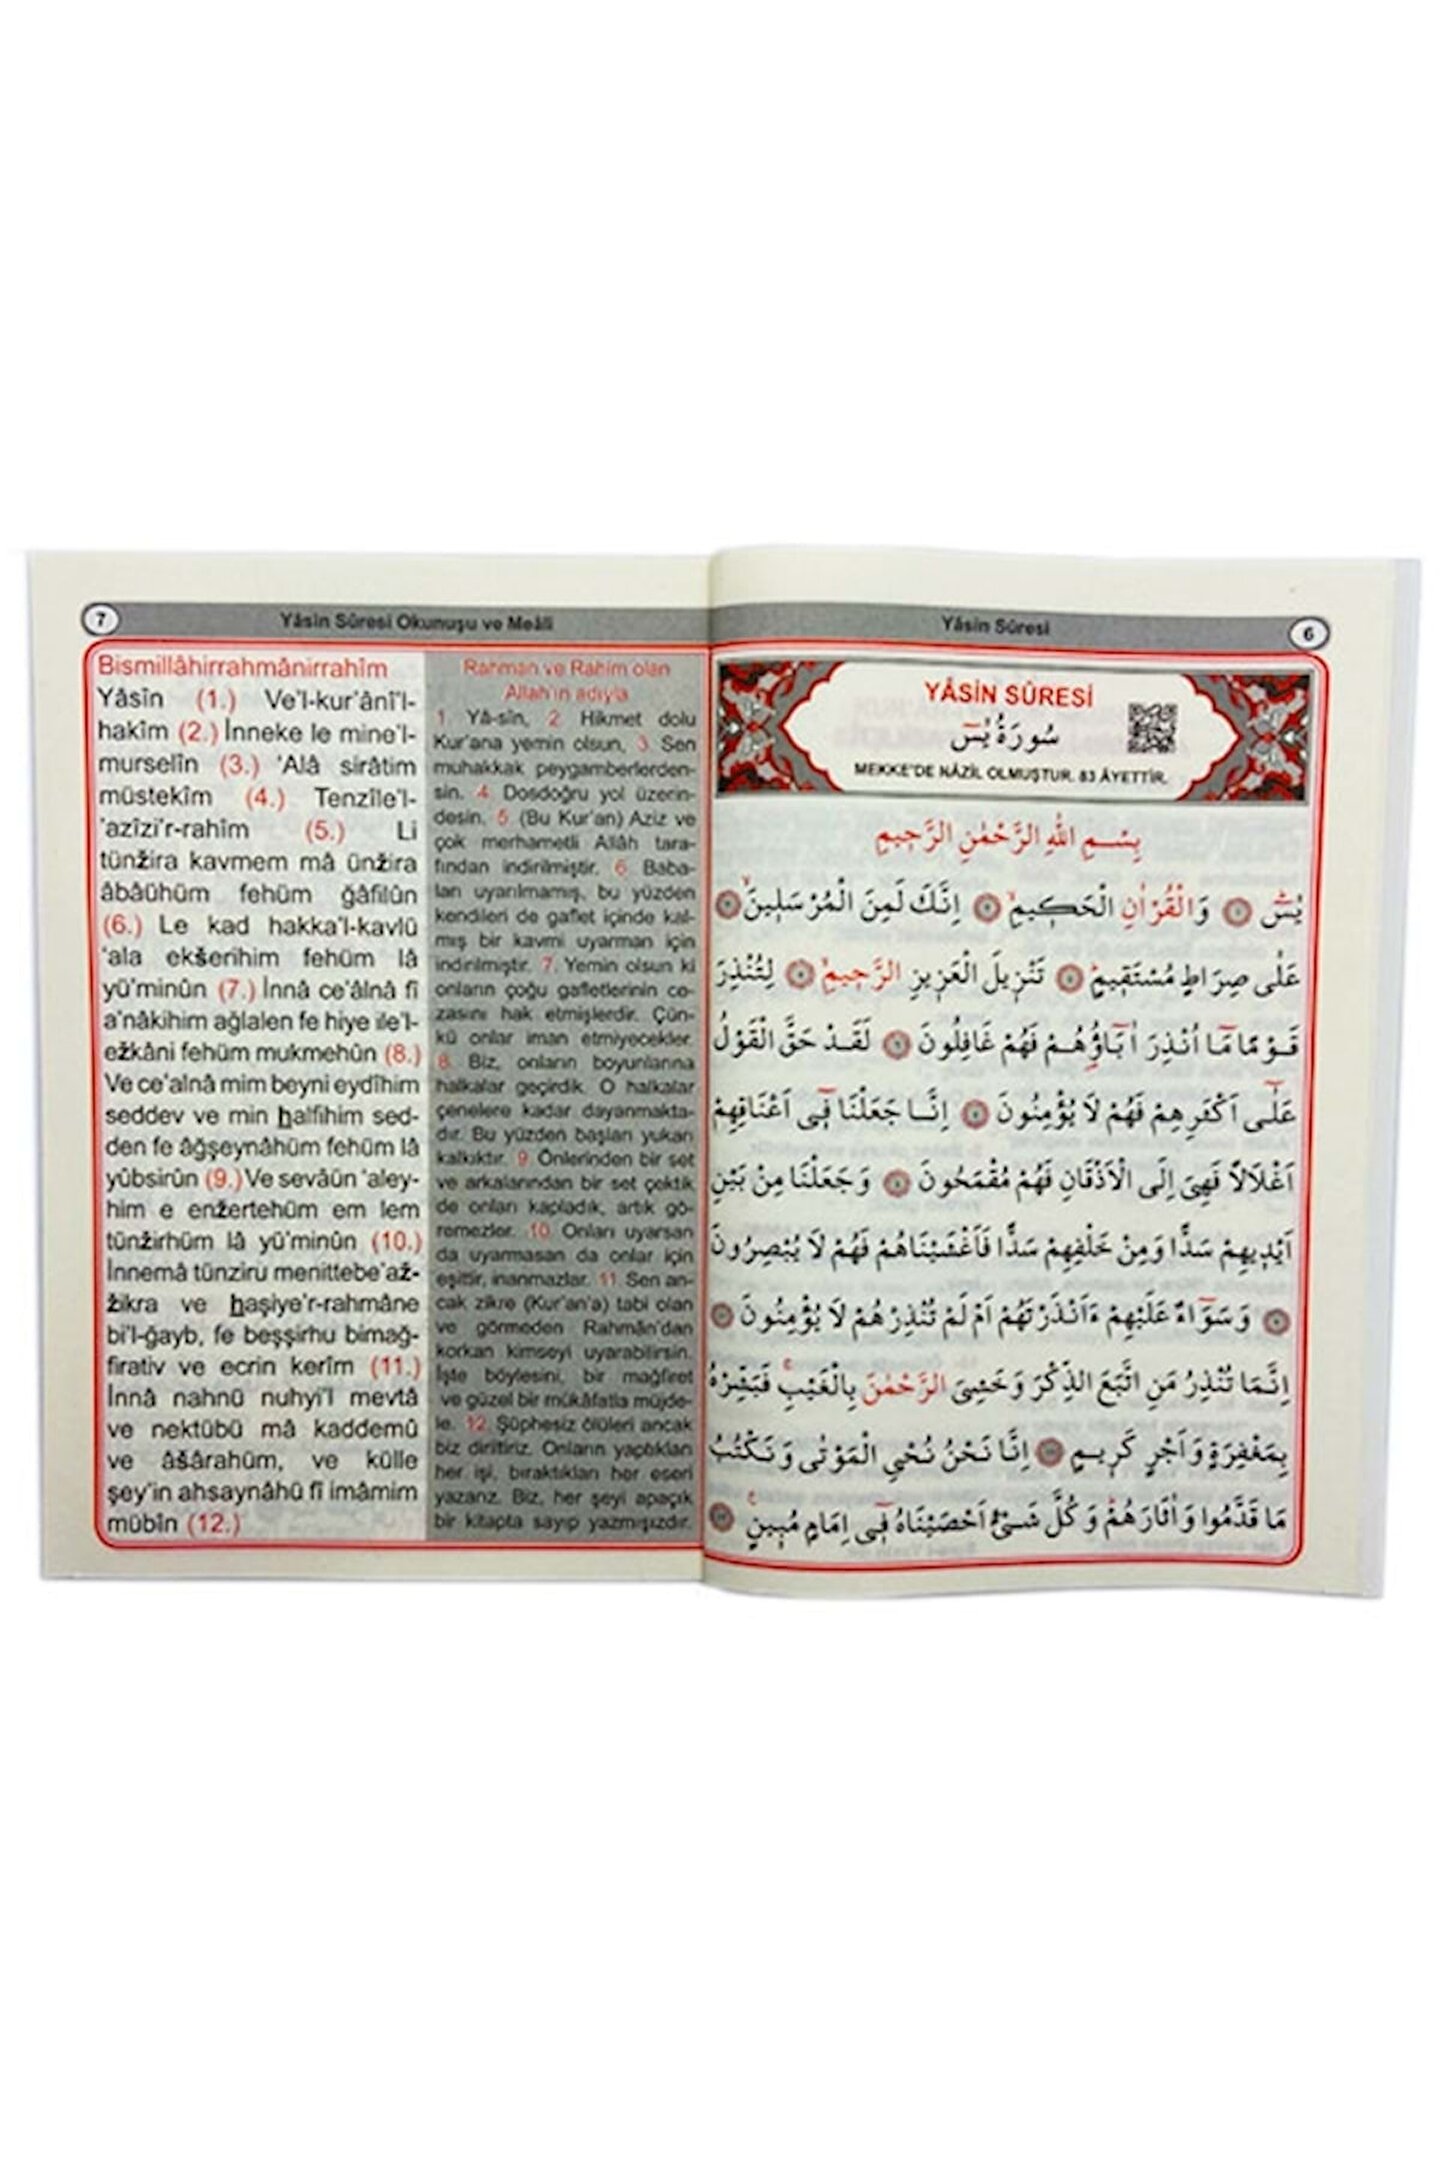 7
Yâsin Sûresi Okunuşu ve Meâli
Bismillâhirrahmânirrahîm
Yâsîn (1.) Ve'l-kur'ânî'l-
hakîm (2.) İnneke le mine'l-
murselîn (3.) 'Alâ sirâtim
müstekîm (4.) Tenzîle'l-
'azîzi'r-rahîm (5.) Li
tünžira kavmem mâ ünžira
âbâühüm fehüm ğâfilûn
(6.) Le kad hakka'l-kavlü
'ala ekšerihim fehüm lâ
yü'minûn (7.) İnnâ ce'âlnâ fî
a'nâkihim ağlalen fe hiye ile'l-
ežkâni fehüm mukmehûn (8.)
Ve ce'alnâ mim beyni eydîhim
seddev ve min halfihim sed-
den fe âğşeynâhüm fehüm lâ
yûbsirûn (9.) Ve sevâün 'aley-
him e enžertehüm em lem
tünžirhüm lâ yü'minûn (10.)
İnnemâ tünziru menittebe'až-
žikra ve haşiye'r-rahmâne
bi'l-ğayb, fe beşşirhu bimağ-
firativ ve ecrin kerîm (11.)
İnnâ nahnü nuhyi'l mevtâ
ve nektübü mâ kaddemû
ve âšârahüm, ve külle
şey'in ahsaynâhü fî imâmim
mübîn (12.)
Rahman ve Rahim olan
Allah'ın adıyla
1. Yâ-sîn, 2. Hikmet dolu
Kur'ana yemin olsun, 3. Sen
muhakkak peygamberlerden-
sin. 4. Dosdoğru yol üzerin-
desin. 5. (Bu Kur'an) Aziz ve
çok merhametli Allâh tara-
fından indirilmiştir. 6. Baba-
ları uyarılmamış, bu yüzden
kendileri de gaflet içinde kal-
mış bir kavmi uyarman için
indirilmiştir. 7. Yemin olsun ki
onların çoğu gafletlerinin ce-
zasını hak etmişlerdir. Çün-
kü onlar iman etmiyecekler.
8. Biz, onların boyunlarına
halkalar geçirdik. O halkalar
çenelere kadar dayanmakta-
dır. Bu yüzden başları yukarı
kalkıktır. 9. Önlerinden bir set
ve arkalarından bir set çektik
de onları kapladık, artık gö-
remezler. 10. Onları uyarsan
da uyarmasan da onlar için
eşittir, inanmazlar. 11. Sen an-
cak zikre (Kur'an'a) tabi olan
ve görmeden Rahmân'dan
korkan kimseyi uyarabilirsin.
İşte böylesini, bir mağfiret
ve güzel bir mükâfatla müjde-
le. 12. Şüphesiz ölüleri ancak
biz diriltiriz. Onların yaptıkları
her işi, bıraktıkları her eseri
yazarız. Biz, her şeyi apaçık
bir kitapta sayıp yazmışızdır.
Yâsin Sûresi
6
YÂSİN SÛRESİ
سُورَةُ يٰسٓ
MEKKE'DE NÂZİL OLMUŞTUR. 83 ÂYETTİR.
بِسْمِ اللّٰهِ الرَّحْمٰنِ الرَّحِيمِ
يٰسٓ ۝ وَالْقُرْاٰنِ الْحَكِيمِ ۝ اِنَّكَ لَمِنَ الْمُرْسَلِينَ ۝
عَلٰى صِرَاطٍ مُسْتَقِيمٍ ۝ تَنْزِيلَ الْعَزِيزِ الرَّحِيمِ ۝ لِتُنْذِرَ
قَوْمًا مَٓا اُنْذِرَ اٰبَٓاؤُهُمْ فَهُمْ غَافِلُونَ ۝ لَقَدْ حَقَّ الْقَوْلُ
عَلٰٓى اَكْثَرِهِمْ فَهُمْ لَا يُؤْمِنُونَ ۝ اِنَّا جَعَلْنَا فِٓي اَعْنَاقِهِمْ
اَغْلَالًا فَهِيَ اِلَى الْاَذْقَانِ فَهُمْ مُقْمَحُونَ ۝ وَجَعَلْنَا مِنْ بَيْنِ
اَيْدِيهِمْ سَدًّا وَمِنْ خَلْفِهِمْ سَدًّا فَاَغْشَيْنَاهُمْ فَهُمْ لَا يُبْصِرُونَ
۝ وَسَوَٓاءٌ عَلَيْهِمْ ءَاَنْذَرْتَهُمْ اَمْ لَمْ تُنْذِرْهُمْ لَا يُؤْمِنُونَ ۝
اِنَّمَا تُنْذِرُ مَنِ اتَّبَعَ الذِّكْرَ وَخَشِيَ الرَّحْمٰنَ بِالْغَيْبِ ۚ فَبَشِّرْهُ
بِمَغْفِرَةٍ وَاَجْرٍ كَرِيمٍ ۝ اِنَّا نَحْنُ نُحْيِ الْمَوْتٰى وَنَكْتُبُ
مَا قَدَّمُوا وَاٰثَارَهُمْ ۜ وَكُلَّ شَيْءٍ اَحْصَيْنَاهُ فِٓي اِمَامٍ مُبِينٍ ۝